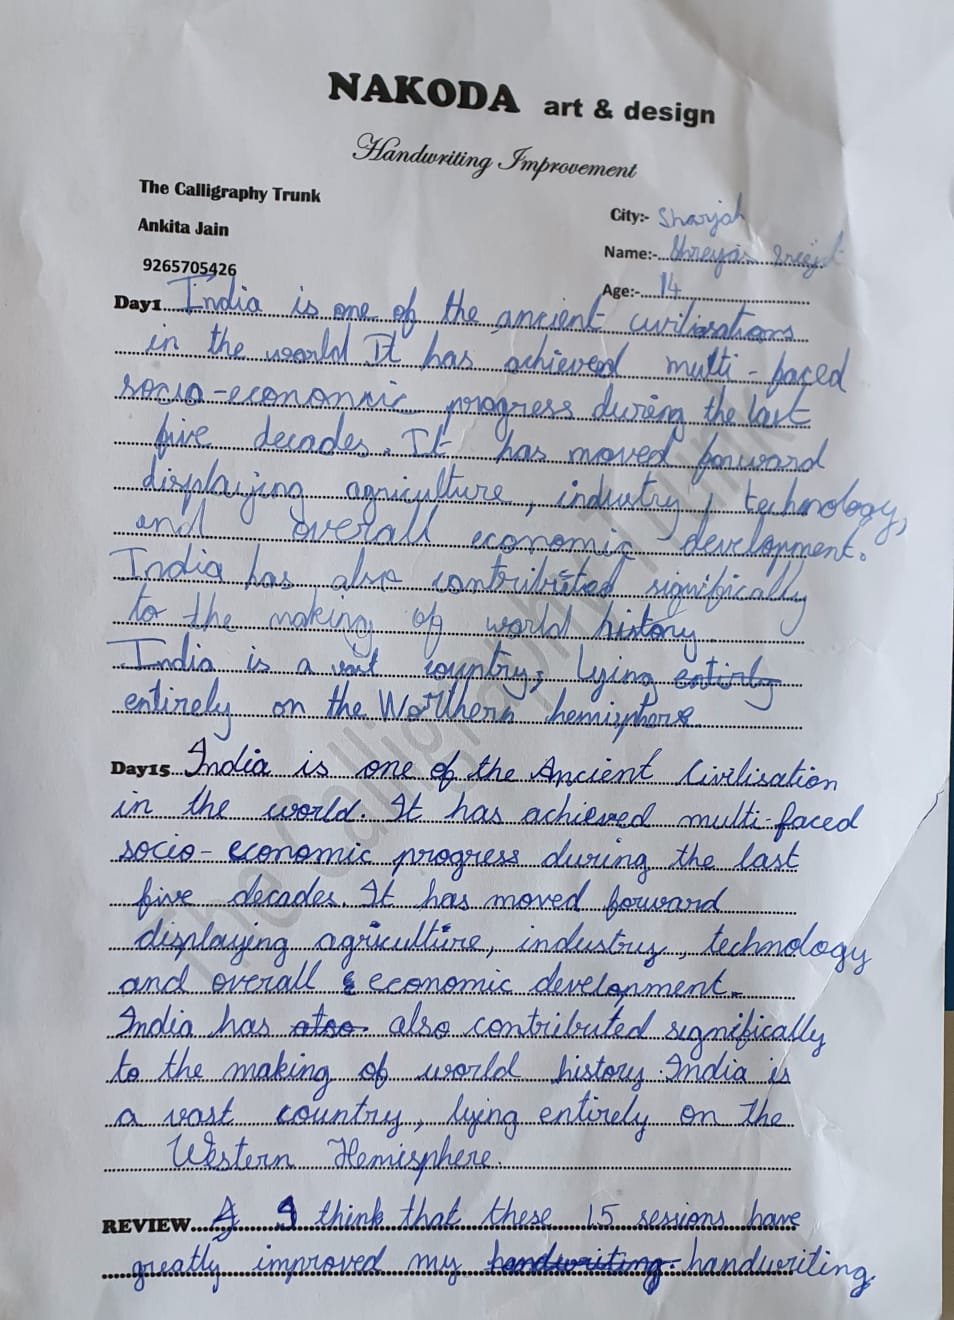 NAKODA art & design
Handwriting Improvement
The Calligraphy Trunk
City:- Sharjah
Ankita Jain
Name:- Shreyas
9265705426
Age:- 14
Day1 India is one of the ancient civilisations
in the world It has achieved multi-faced
socio-economic progress during the last
five decades. It has moved forward
displaying agriculture, industry, technology,
and overall economic development.
India has also contributed significally
to the making of world history
India is a vast country, lying entirly
entirely on the hemisphere
Day15 India is one of the Ancient Civilisation
in the world. It has achieved multi-faced
socio-economic progress during the last
five decades. It has moved forward
displaying agriculture, industry, technology
and overall economic development.
India has also also contributed significally
to the making of world history. India is
a vast country, lying entirely on the
Western Hemisphere.
REVIEW I think that these 15 sessions have
greatly improved my handwriting handwriting.
The Calligraphy Trunk